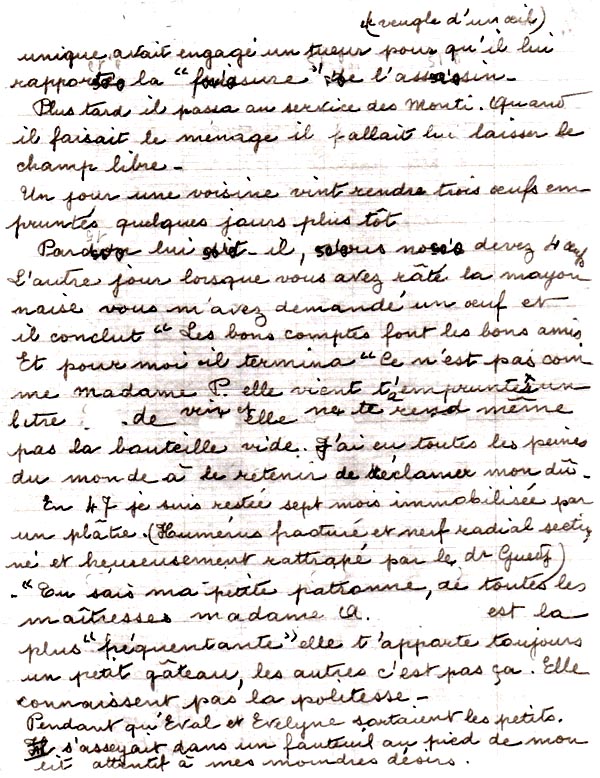 (Aveugle d'un œil)
unique avait engagé un tueur pour qu'il lui
rapporte la " de l'assassin.
Plus tard il passa au service des Monti. Quand
il faisait le ménage il fallait lui laisser le
champ libre.
Un jour une voisine vint rendre trois œufs em
pruntés quelques jours plus tôt
Pardon lui dit-il, vous nous devez 4 œufs
L'autre jour lorsque vous avez râté la mayon
naise vous m'avez demandé un œuf et
il conclut " Les bons comptes font les bons amis
Et pour moi il termina " Ce n'est pas com
me madame P. elle vient t'emprunter un
litre de vin et elle ne te rend même
pas la bouteille vide. J'ai eu toutes les peines
du monde à le retenir de réclamer mon dû.
En 47 je suis restée sept mois immobilisée par
un plâtre. (Humérus fracturé et nerf radial section
né et heureusement rattrapé par le dr )
- "Tu sais ma petite patronne, de toutes les
maîtresses madame A. est la
plus "fréquentante" elle t'apporte toujours
un petit gâteau, les autres c'est pas ça. Elle
connaissent pas la politesse -
Pendant qu'Eval et Evelyne sortaient les petits.
Il s'asseyait dans un fauteuil au pied de mon
lit attentif à mes moindres désirs.